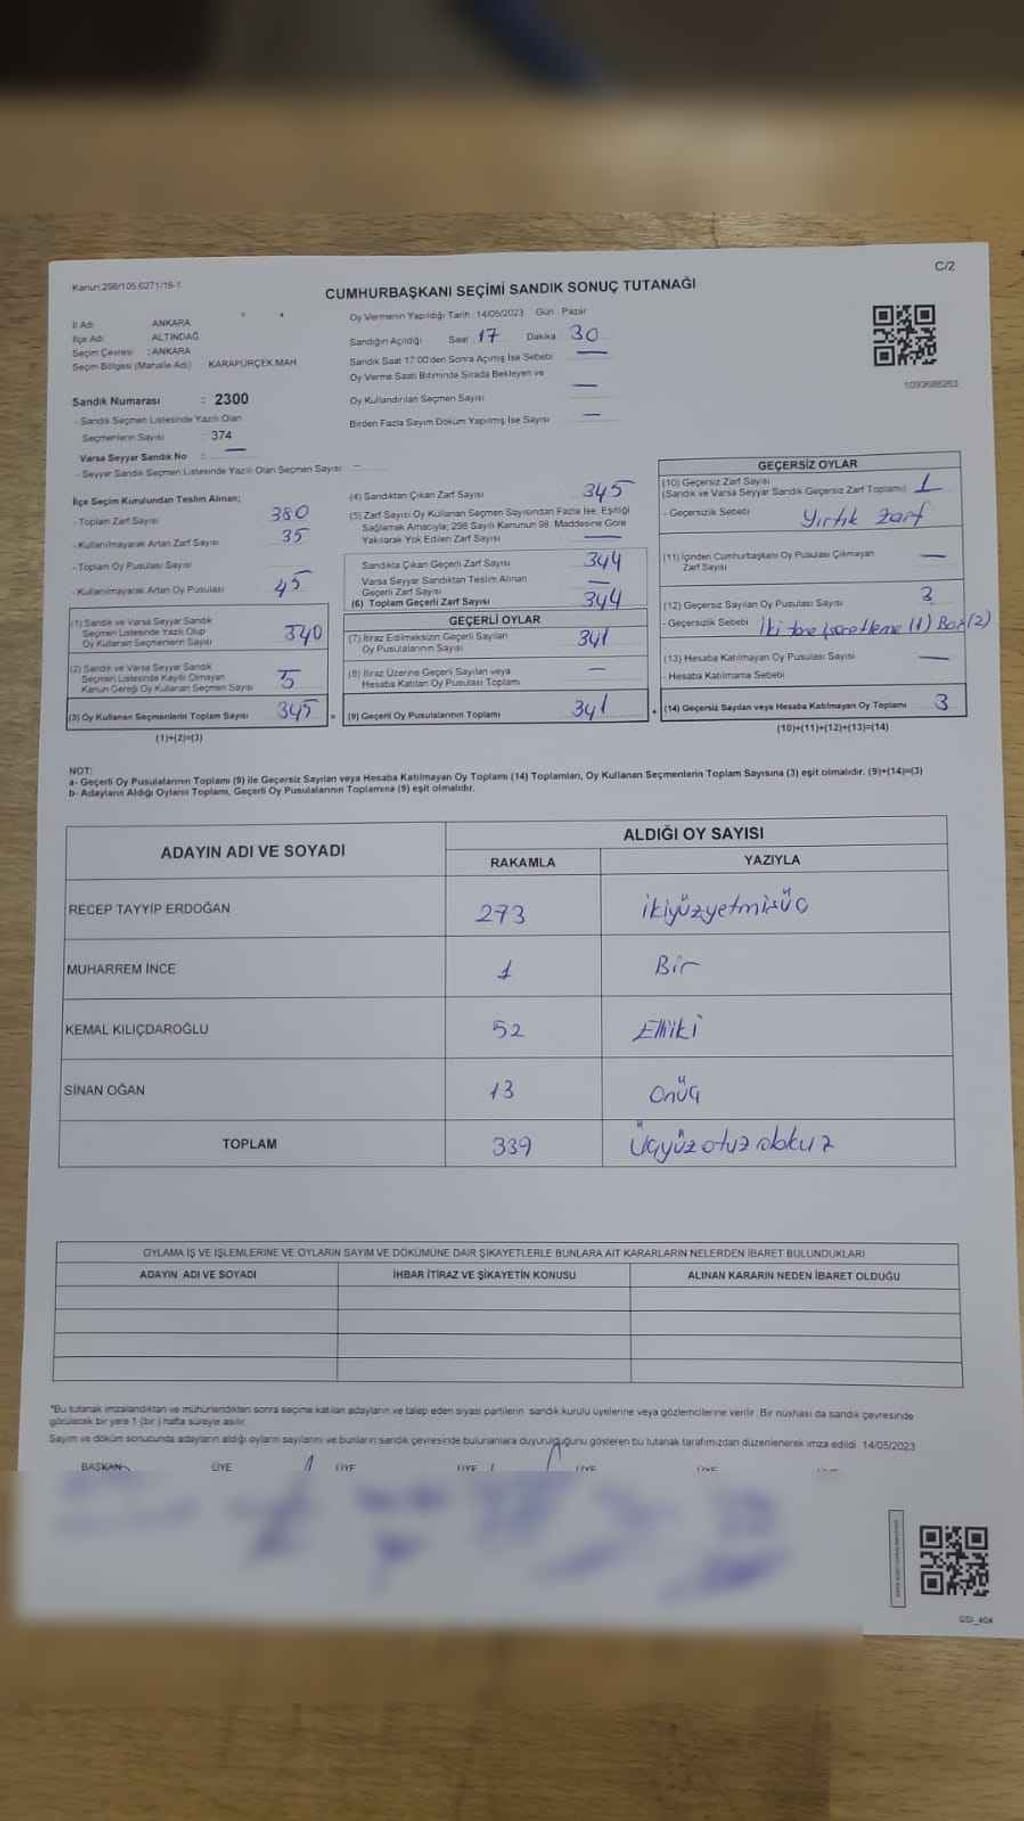 C/2
Kanun:298/105,6271/19-1
CUMHURBAŞKANI SEÇİMİ SANDIK SONUÇ TUTANAĞI
İl Adı : ANKARA
İlçe Adı : ALTINDAĞ
Seçim Çevresi : ANKARA
Seçim Bölgesi (Mahalle Adı) : KARAPÜRÇEK MAH.
Sandık Numarası : 2300
- Sandık Seçmen Listesinde Yazılı Olan
Seçmenlerin Sayısı : 374
Varsa Seyyar Sandık No : —
- Seyyar Sandık Seçmen Listesinde Yazılı Olan Seçmen Sayısı : —
Oy Vermenin Yapıldığı Tarih : 14/05/2023 Gün : Pazar
Sandığın Açıldığı Saat : 17 Dakika : 30
Sandık Saat 17:00'den Sonra Açılmış İse Sebebi : —
Oy Verme Saati Bitiminde Sırada Bekleyen ve
Oy Kullandırılan Seçmen Sayısı : —
Birden Fazla Sayım Döküm Yapılmış İse Sayısı : —
İlçe Seçim Kurulundan Teslim Alınan;
- Toplam Zarf Sayısı 380
- Kullanılmayarak Artan Zarf Sayısı 35
- Toplam Oy Pusulası Sayısı
- Kullanılmayarak Artan Oy Pusulası 45
(1) Sandık ve Varsa Seyyar Sandık
Seçmen Listesinde Yazılı Olup
Oy Kullanan Seçmenlerin Sayısı 340
(2) Sandık ve Varsa Seyyar Sandık
Seçmen Listesinde Kayıtlı Olmayan
Kanun Gereği Oy Kullanan Seçmen Sayısı 5
(3) Oy Kullanan Seçmenlerin Toplam Sayısı 345
(1)+(2)=(3)
(4) Sandıktan Çıkan Zarf Sayısı 345
(5) Zarf Sayısı Oy Kullanan Seçmen Sayısından Fazla İse, Eşitliği
Sağlamak Amacıyla; 298 Sayılı Kanunun 98. Maddesine Göre
Yakılarak Yok Edilen Zarf Sayısı —
Sandıkta Çıkan Geçerli Zarf Sayısı 344
Varsa Seyyar Sandıktan Teslim Alınan
Geçerli Zarf Sayısı —
(6) Toplam Geçerli Zarf Sayısı 344
GEÇERLİ OYLAR
(7) İtiraz Edilmeksizin Geçerli Sayılan
Oy Pusulalarının Sayısı 341
(8) İtiraz Üzerine Geçerli Sayılan veya
Hesaba Katılan Oy Pusulası Toplamı —
= (9) Geçerli Oy Pusulalarının Toplamı 341
GEÇERSİZ OYLAR
(10) Geçersiz Zarf Sayısı
(Sandık ve Varsa Seyyar Sandık Geçersiz Zarf Toplamı) 1
- Geçersizlik Sebebi Yırtık zarf
(11) İçinden Cumhurbaşkanı Oy Pusulası Çıkmayan
Zarf Sayısı —
(12) Geçersiz Sayılan Oy Pusulası Sayısı 3
- Geçersizlik Sebebi İki tane işaretleme (1) Boş (2)
(13) Hesaba Katılmayan Oy Pusulası Sayısı —
- Hesaba Katılmama Sebebi
+ (14) Geçersiz Sayılan veya Hesaba Katılmayan Oy Toplamı 3
(10)+(11)+(12)+(13)=(14)
NOT:
a- Geçerli Oy Pusulalarının Toplamı (9) ile Geçersiz Sayılan veya Hesaba Katılmayan Oy Toplamı (14) Toplamları, Oy Kullanan Seçmenlerin Toplam Sayısına (3) eşit olmalıdır. (9)+(14)=(3)
b- Adayların Aldığı Oyların Toplamı, Geçerli Oy Pusulalarının Toplamına (9) eşit olmalıdır.
ADAYIN ADI VE SOYADI
ALDIĞI OY SAYISI
RAKAMLA YAZIYLA
RECEP TAYYİP ERDOĞAN 273 ikiyüzyetmişüç
MUHARREM İNCE 1 Bir
KEMAL KILIÇDAROĞLU 52 Elliiki
SİNAN OĞAN 13 Onüç
TOPLAM 339 Üçyüzotuzdokuz
OYLAMA İŞ VE İŞLEMLERİNE VE OYLARIN SAYIM VE DÖKÜMÜNE DAİR ŞİKAYETLERLE BUNLARA AİT KARARLARIN NELERDEN İBARET BULUNDUKLARI
ADAYIN ADI VE SOYADI İHBAR İTİRAZ VE ŞİKAYETİN KONUSU ALINAN KARARIN NEDEN İBARET OLDUĞU
*Bu tutanak imzalandıktan ve mühürlendikten sonra seçime katılan adayların ve talep eden siyasi partilerin sandık kurulu üyelerine veya gözlemcilerine verilir. Bir nüshası da sandık çevresinde
görülecek bir yere 1 (bir) hafta süreyle asılır.
Sayım ve döküm sonucunda adayların aldığı oyların sayılarını ve bunların sandık çevresinde bulunanlara duyurulduğunu gösteren bu tutanak tarafımızdan düzenlenerek imza edildi. 14/05/2023
BAŞKAN ÜYE ÜYE ÜYE ÜYE ÜYE